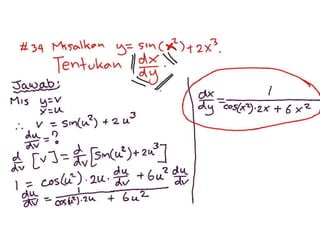 #34 Misalkan y=sin(x²)+2x³.
Tentukan dx/dy.
Jawab:
Mis y=v
x=u
∴ v = sin(u²) + 2u³
du/dv = ?
d/dv [v] = d/dv [sin(u²)+2u³]
1 = cos(u²)·2u·du/dv + 6u² du/dv
du/dv = 1/cos(u²)·2u + 6u²
dx/dy = 1/cos(x²)·2x + 6x²